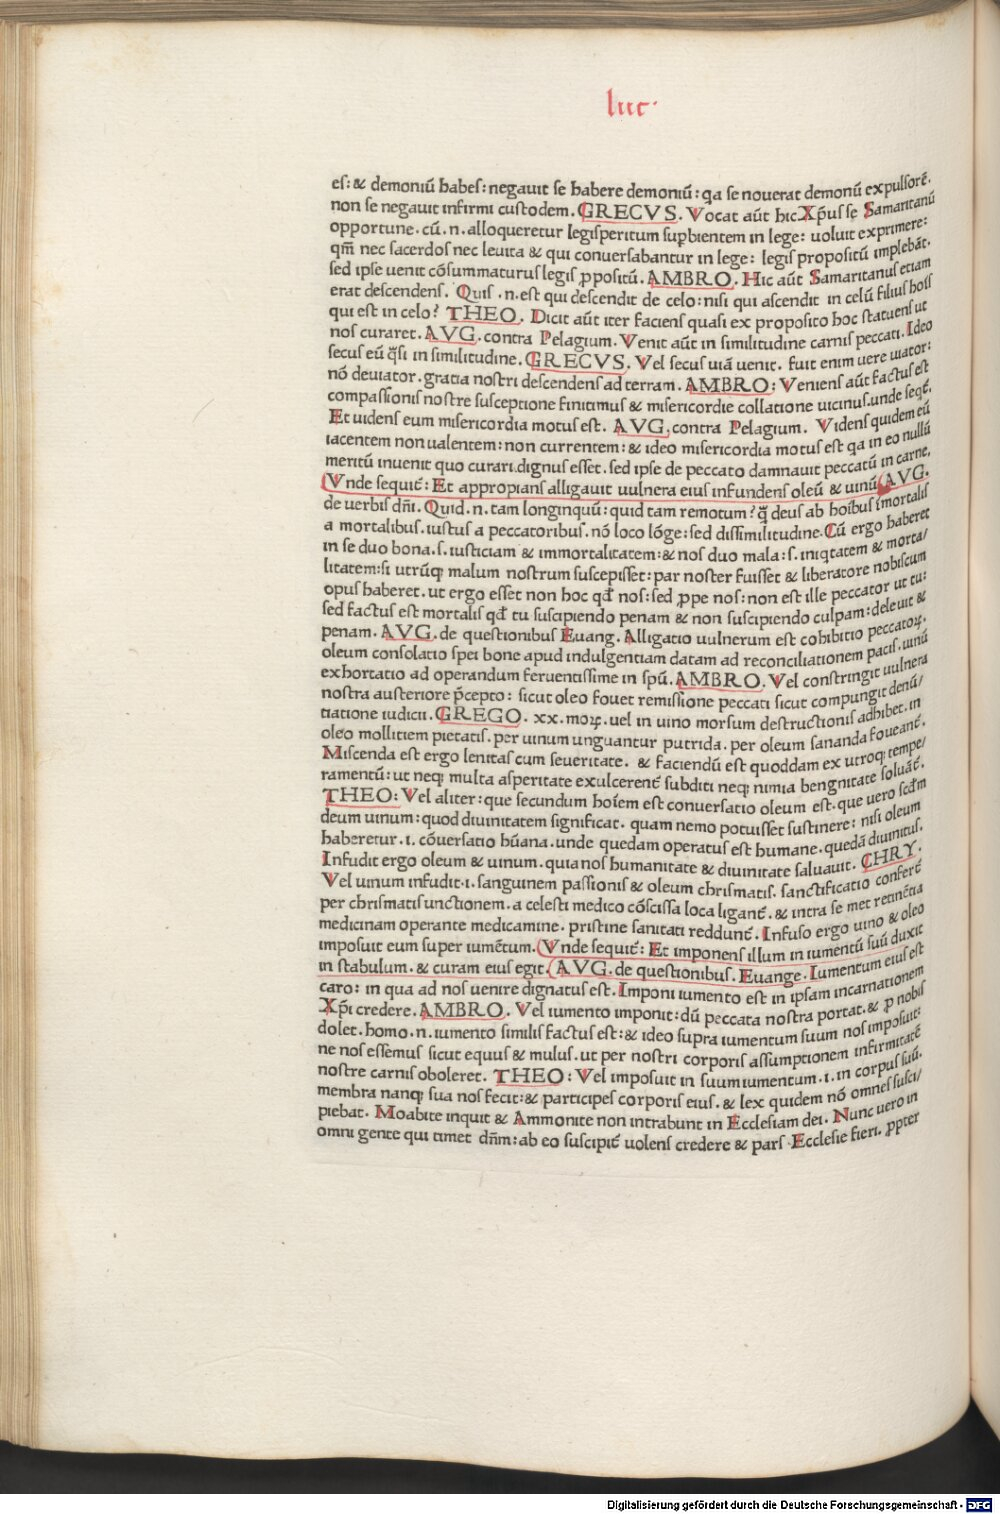 luc·
es: & demoniū habes: negauit se habere demoniū: qa se nouerat demonū expulsorē.
non se negauit infirmi custodem. GRECVS. Vocat aūt hic Xp̄us se Samaritanū
opportune. cū .n. alloqueretur legisperitum supbientem in lege: uoluit exprimere:
qm̄ nec sacerdos nec leuita & qui conuersabantur in lege: legis propositū implebāt.
sed ipse uenit cōsummaturus legis ppositū. AMBRO. Hic aūt Samaritanus etiam
erat descendens. Quis .n. est qui descendit de celo: nisi qui ascendit in celū filius hoīs
qui est in celo? THEO. Dicit aūt iter faciens quasi ex proposito hoc statuens ut
nos curaret. AVG. contra Pelagium. Venit aūt in similitudine carnis peccati. Ideo
secus eū q̄si in similitudine. GRECVS. Vel secus uiā uenit. fuit enim uere uiator:
nō deuiator. gratia nostri descendens ad terram. AMBRO: Veniens aūt factus est
compassionis nostre susceptione finitimus & misericordie collatione uicinus. unde seqt̄.
Et uidens eum misericordia motus est. AVG. contra Pelagium. Videns quidem eū
iacentem non ualentem: non currentem: & ideo misericordia motus est qa in eo nullū
meritū inuenit quo curari dignus esset. sed ipse de peccato damnauit peccatū in carne.
Vnde sequit̄: Et appropians alligauit uulnera eius infundens oleū & uinū AVG.
de uerbis dn̄i. Quid .n. tam longinquū: quid tam remotum? q̄ deus ab hoībus īmortalis
a mortalibus. iustus a peccatoribus. nō loco lōge: sed dissimilitudine. Cū ergo haberet
in se duo bona .s. iusticiam & immortalitatem: & nos duo mala: s. iniqtatem & morta/
litatem: si utrūq; malum nostrum suscepisset: par noster fuisset & liberatore nobiscum
opus haberet. ut ergo esset non hoc qd̄ nos: sed ppe nos: non est ille peccator ut tu:
sed factus est mortalis qd̄ tu suscipiendo penam & non suscipiendo culpam: deleuit &
penam. AVG. de questionibus Euang. Alligatio uulnerum est cohibitio peccatoꝝ.
oleum consolatio spei bone apud indulgentiam datam ad reconciliationem pacis. uinū
exhortatio ad operandum feruentissime in spū. AMBRO. Vel constringit uulnera
nostra austeriore p̄cepto: sicut oleo fouet remissione peccati sicut compungit denū/
tiatione iudicii. GREGO. xx. moꝝ. uel in uino morsum destructionis adhibet. in
oleo mollitiem pietatis. per uinum unguantur putrida. per oleum sananda foueant̄.
Miscenda est ergo lenitas cum seueritate. & faciendū est quoddam ex utroq; tempe/
ramentū: ut neq; multa asperitate exulcerent̄ subditi neq; nimia bengnitate soluāt̄.
THEO: Vel aliter: que secundum hoīem est conuersatio oleum est. que uero scd̄m
deum uinum: quod diuinitatem significat. quam nemo potuisset sustinere: nisi oleum
haberetur .i. cōuersatio hūana. unde quedam operatus est humane. quedā diuinitus.
Infudit ergo oleum & uinum. quia nos humanitate & diuinitate saluauit. CHRY.
Vel uinum infudit .i. sanguinem passionis & oleum chrismatis. sanctificatio confert̄
per chrismatis unctionem. a celesti medico cōscissa loca ligant̄. & intra se met retinētia
medicinam operante medicamine. pristine sanitati reddunt̄. Infuso ergo uino & oleo
imposuit eum super iumētum. Vnde sequit̄: Et imponens illum in iumentū suū duxit
in stabulum. & curam eius egit. AVG. de questionibus. Euange. Iumentum eius est
caro: in qua ad nos uenire dignatus est. Imponi iumento est in ipsam incarnationem
Xp̄i credere. AMBRO. Vel iumento imponit: dū peccata nostra portat. & p nobis
dolet. homo .n. iumento similis factus est: & ideo supra iumentum suum nos imposuit:
ne nos essemus sicut equus & mulus. ut per nostri corporis assumptionem infirmitatē
nostre carnis oboleret. THEO: Vel imposuit in suum iumentum .i. in corpus suū.
membra nanq; sua nos fecit: & participes corporis eius. & lex quidem nō omnes susci/
piebat. Moabite inquit & Ammonite non intrabunt in Ecclesiam dei. Nunc uero in
omni gente qui timet dn̄m: ab eo suscipit̄ uolens credere & pars Ecclesie fieri. ppter
Digitalisierung gefördert durch die Deutsche Forschungsgemeinschaft - DFG